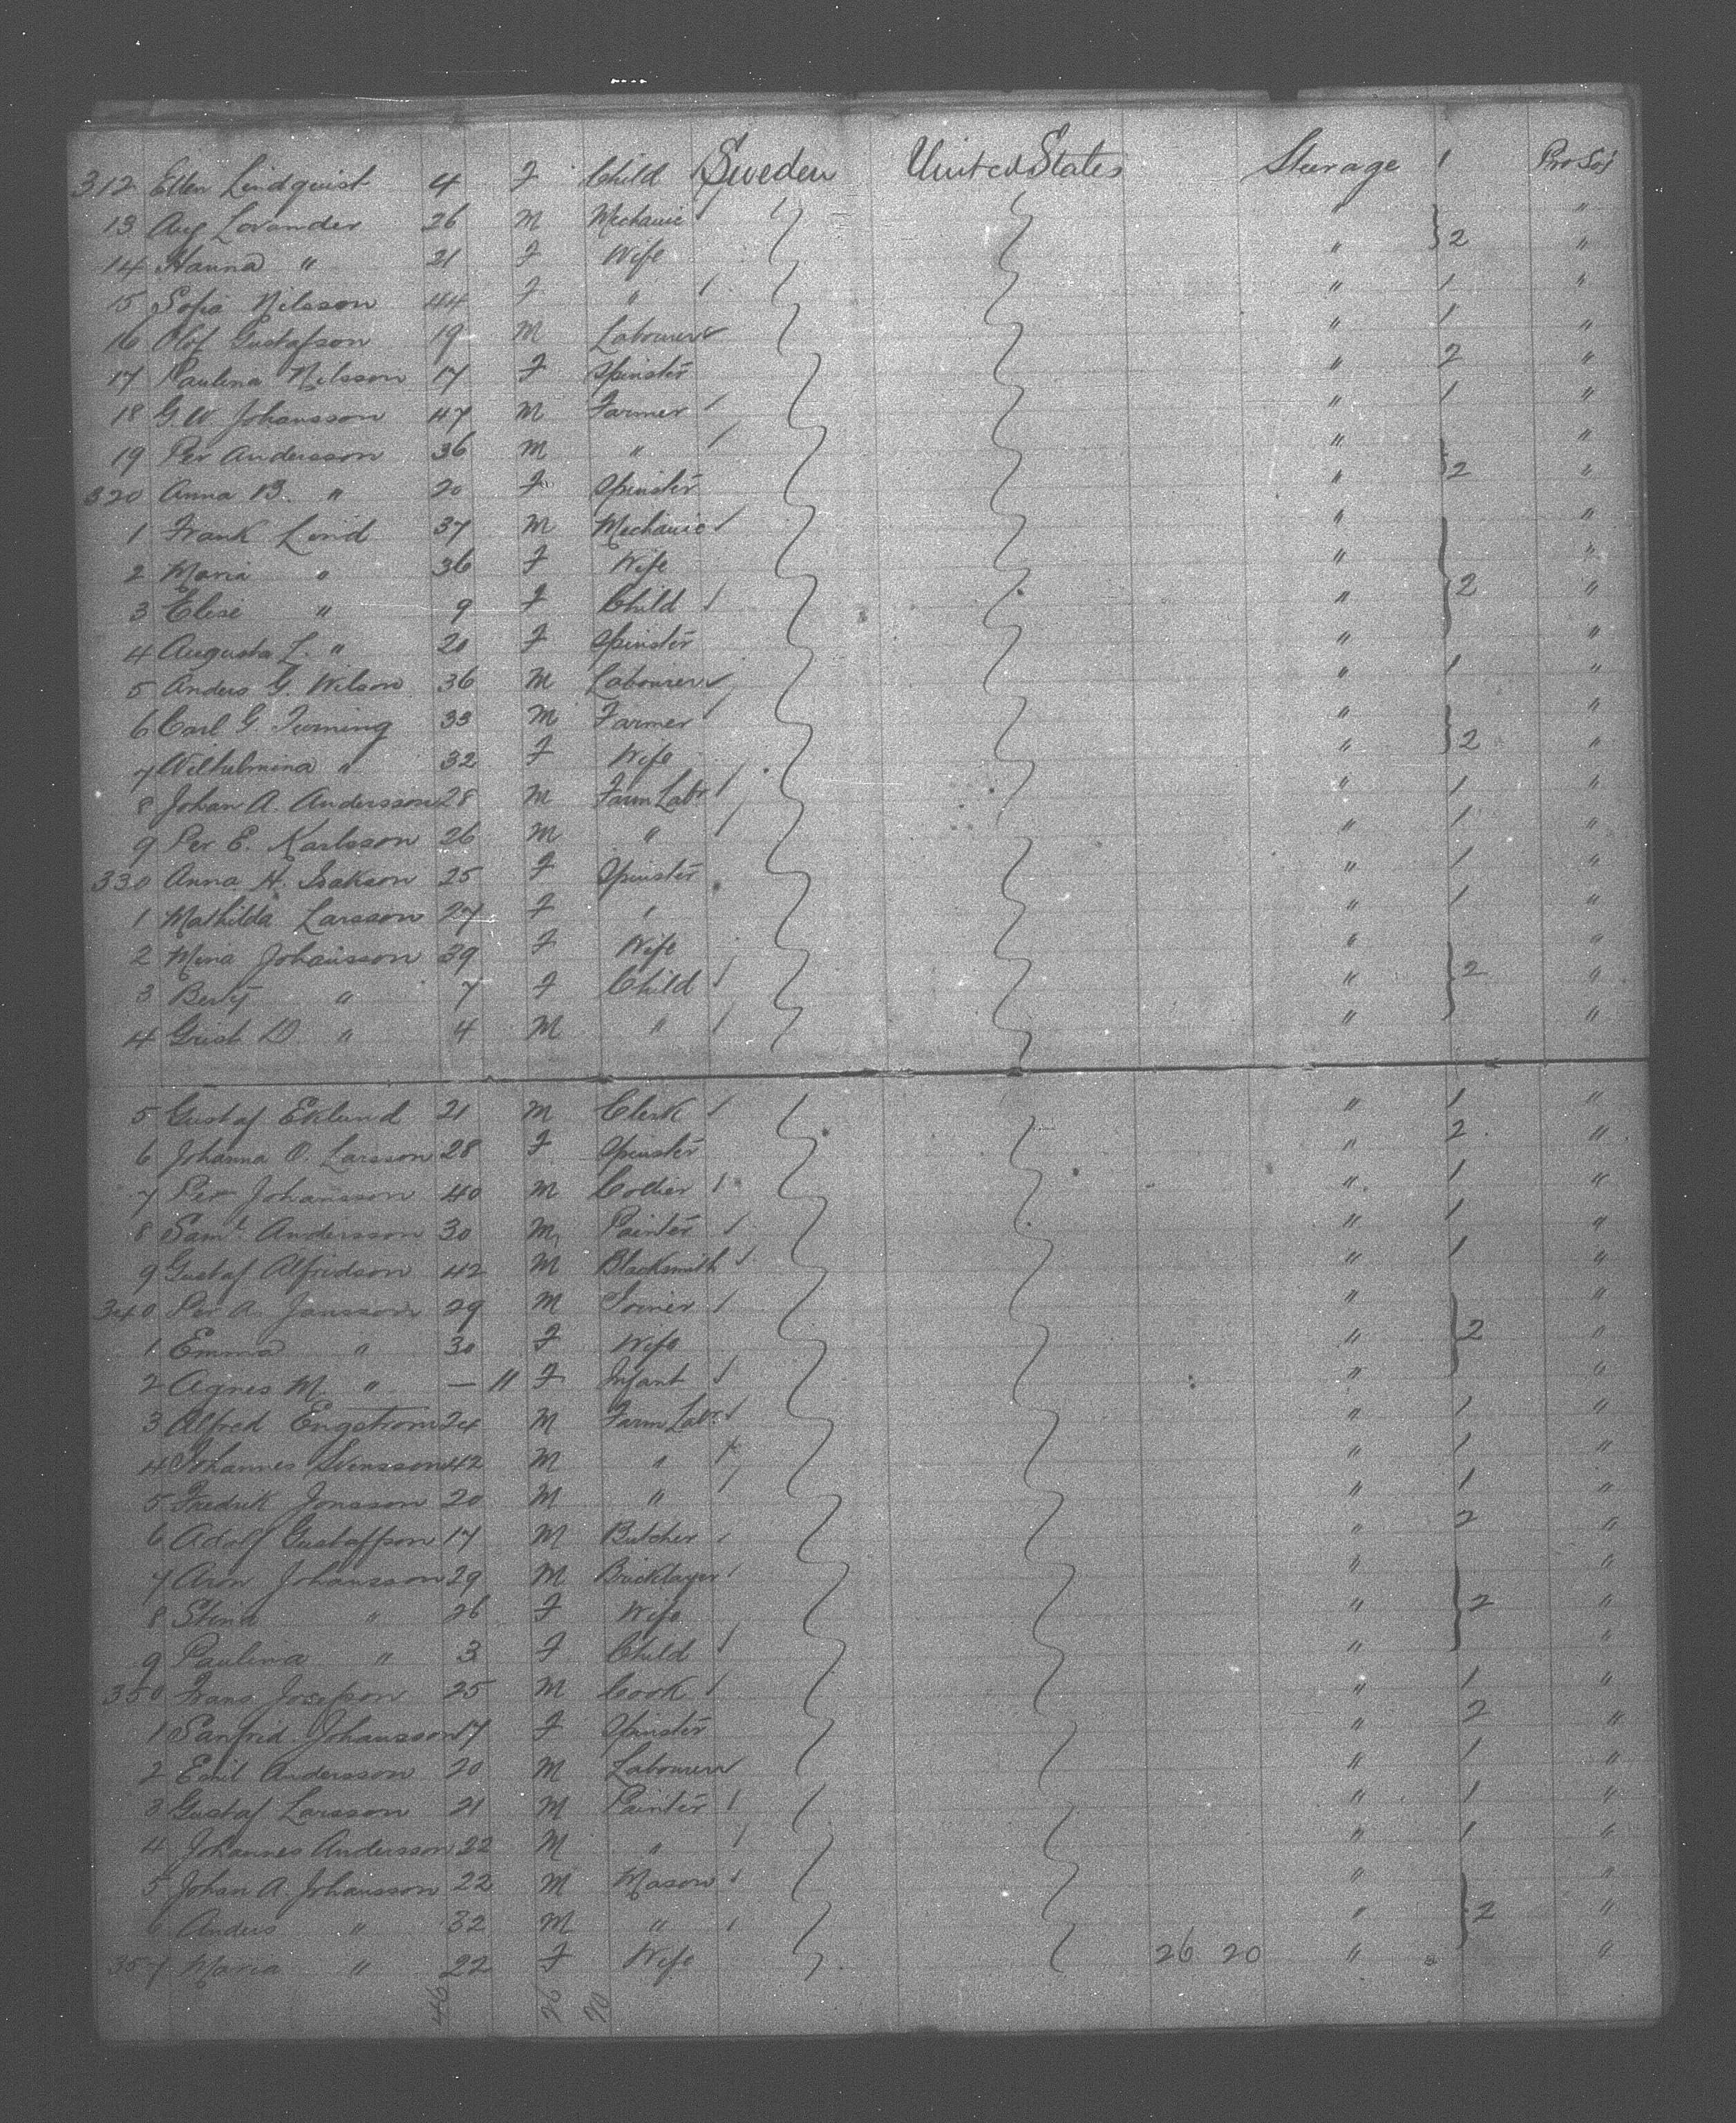 312 Ellen Lindquist 4 F Child Sweden United States Steerage 1 Pro Soj
13 Aug Lovander 26 M Mechanic " 2 "
14 Hanna " 21 F Wife " "
15 Sofia Nilsson 44 F " " 1 "
16 Olof Gustafson 19 M Labourer " 1 "
17 Paulina Nilsson 17 F Spinster " 2 "
18 G. W. Johansson 47 M Farmer " 1 "
19 Per Andersson 36 M " " 2 "
320 Anna B. " 20 F Spinster " "
1 Frank Lind 37 M Mechanic " 2 "
2 Maria " 36 F Wife " "
3 Elise " 9 F Child " "
4 Augusta L. " 20 F Spinster " "
5 Anders G. Wilson 36 M Labourer " 1 "
6 Carl G. 33 M Farmer " 2 "
7 Wilhelmina " 32 F Wife " "
8 Johan A. Andersson 28 M Farm Labr " 1 "
9 Per E. Karlsson 26 M " " 1 "
330 Anna H. Isakson 25 F Spinster " 1 "
1 Mathilda Larsson 27 F " " 1 "
2 Mina Johansson 39 F Wife " 2 "
3 Berty " 7 F Child " "
4 Gust D. " 4 M " " "
5 Gustaf Eklund 21 M Clerk " 1 "
6 Johanna O. Larsson 28 F Spinster " 2 "
7 Per Johansson 40 M Collier " 1 "
8 Saml. Andersson 30 M Painter " 1 "
9 Gustaf Alfridson 42 M Blacksmith " 1 "
340 Per A. Jansson 29 M Joiner " 2 "
1 Emma " 30 F Wife " "
2 Agnes M. " — 11 F Infant " "
3 Alfred Engstrom 24 M Farm Labr " 1 "
4 Johannes Svensson 42 M " " 1 "
5 Fredrik Jonsson 20 M " " 1 "
6 Adolf Gustaffson 17 M Butcher " 2 "
7 Aron Johansson 29 M Bricklayer " 2 "
8 Stina " 26 F Wife " "
9 Paulina " 3 F Child " "
350 Frans Josefson 25 M Cook " 1 "
1 Sanfrid Johansson 17 F Spinster " 2 "
2 Emil Andersson 20 M Labourer " 1 "
3 Gustaf Larsson 21 M Painter " 1 "
4 Johannes Andersson 22 M " " 1 "
5 Johan A. Johansson 22 M Mason " 2 "
6 Anders " 32 M " " "
357 Maria " 22 F Wife 26 20 " "
46 26 20